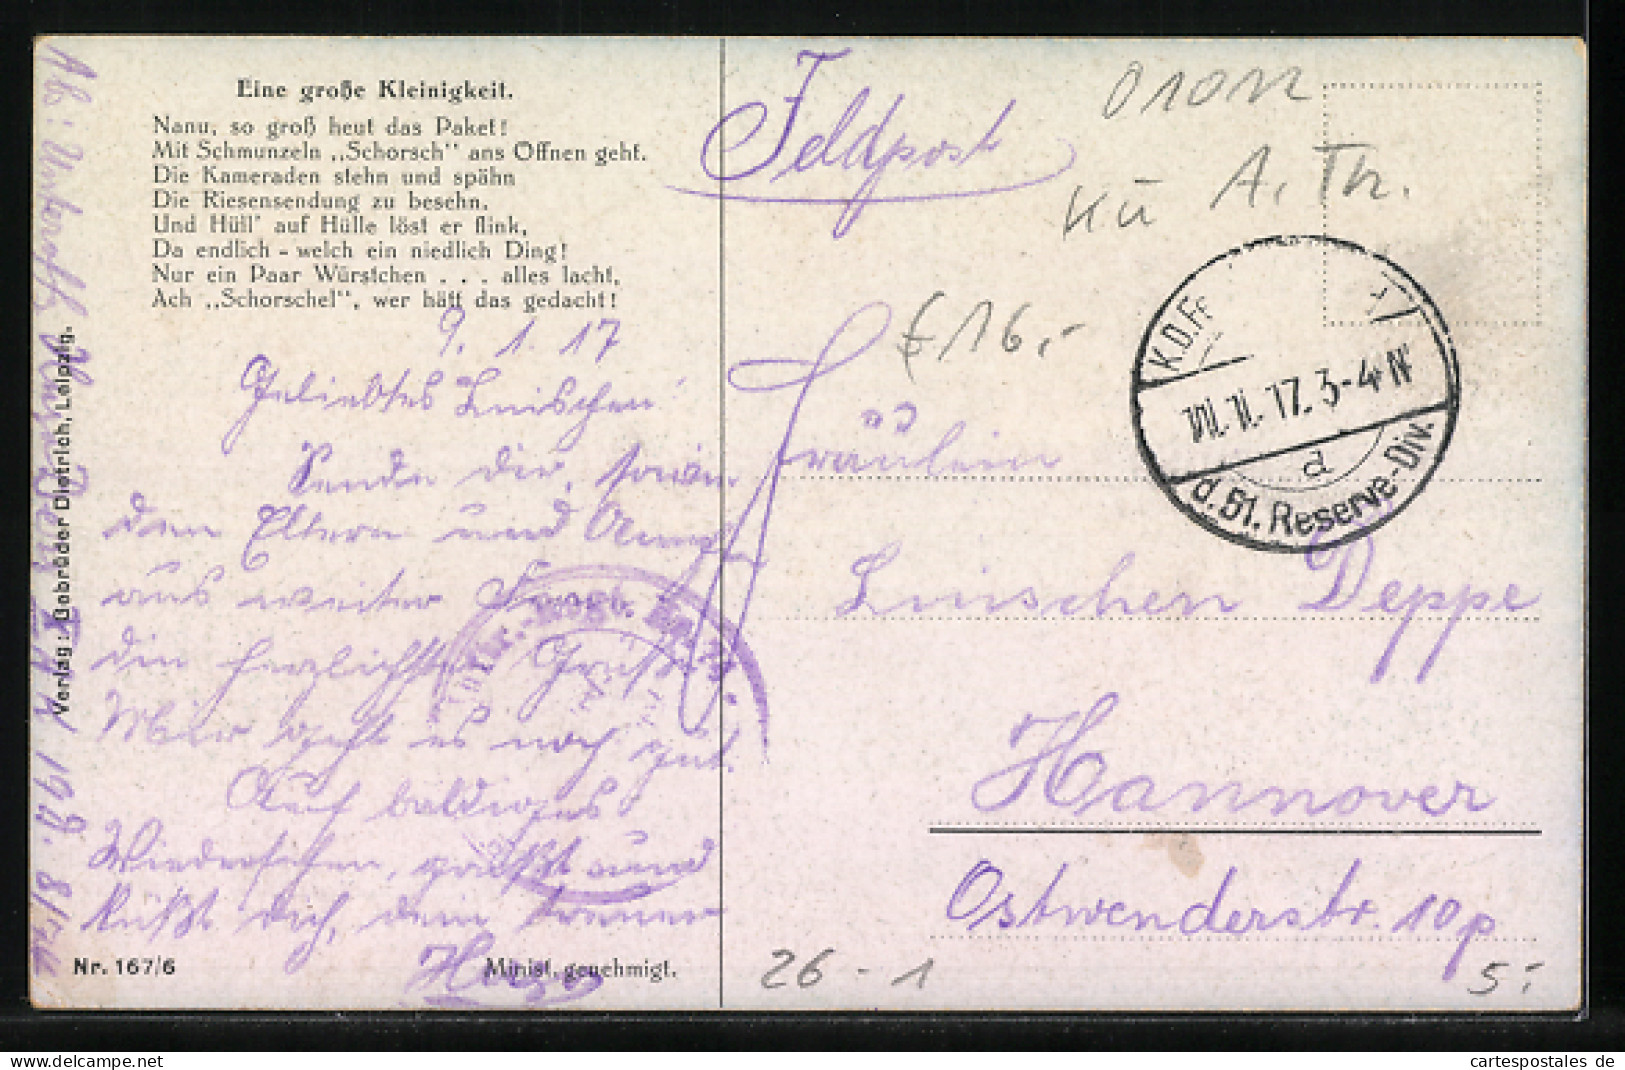 Eine große Kleinigkeit.
Nanu, so groß heut das Paket!
Mit Schmunzeln „Schorsch" ans Öffnen geht.
Die Kameraden stehn und spähn
Die Riesensendung zu besehn.
Und Hüll' auf Hülle löst er flink,
Da endlich - welch ein niedlich Ding!
Nur ein Paar Würstchen . . . alles lacht,
Ach „Schorschel", wer hätt das gedacht!
9. 1. 17
Geliebtes Luischen!
Sende dir, sowie
den Eltern und
aus weiter Ferne
die herzlichsten Grüße.
Mir geht es noch gut.
Auf baldiges
Wiedersehen, grüßt und
küßt dich, dein treuer
Nr. 167/6
Minist. genehmigt.
Verlag: Gebrüder Dietrich, Leipzig.
Feldpost
Kü A. Th.
€ 16,-
K.D.F
17. 3-4 N
d
d. 51. Reserve-Div.
Fräulein
Luischen Deppe
Hannover
Ostwenderstr. 10 p
26 - 1
5,-
cartespostales de